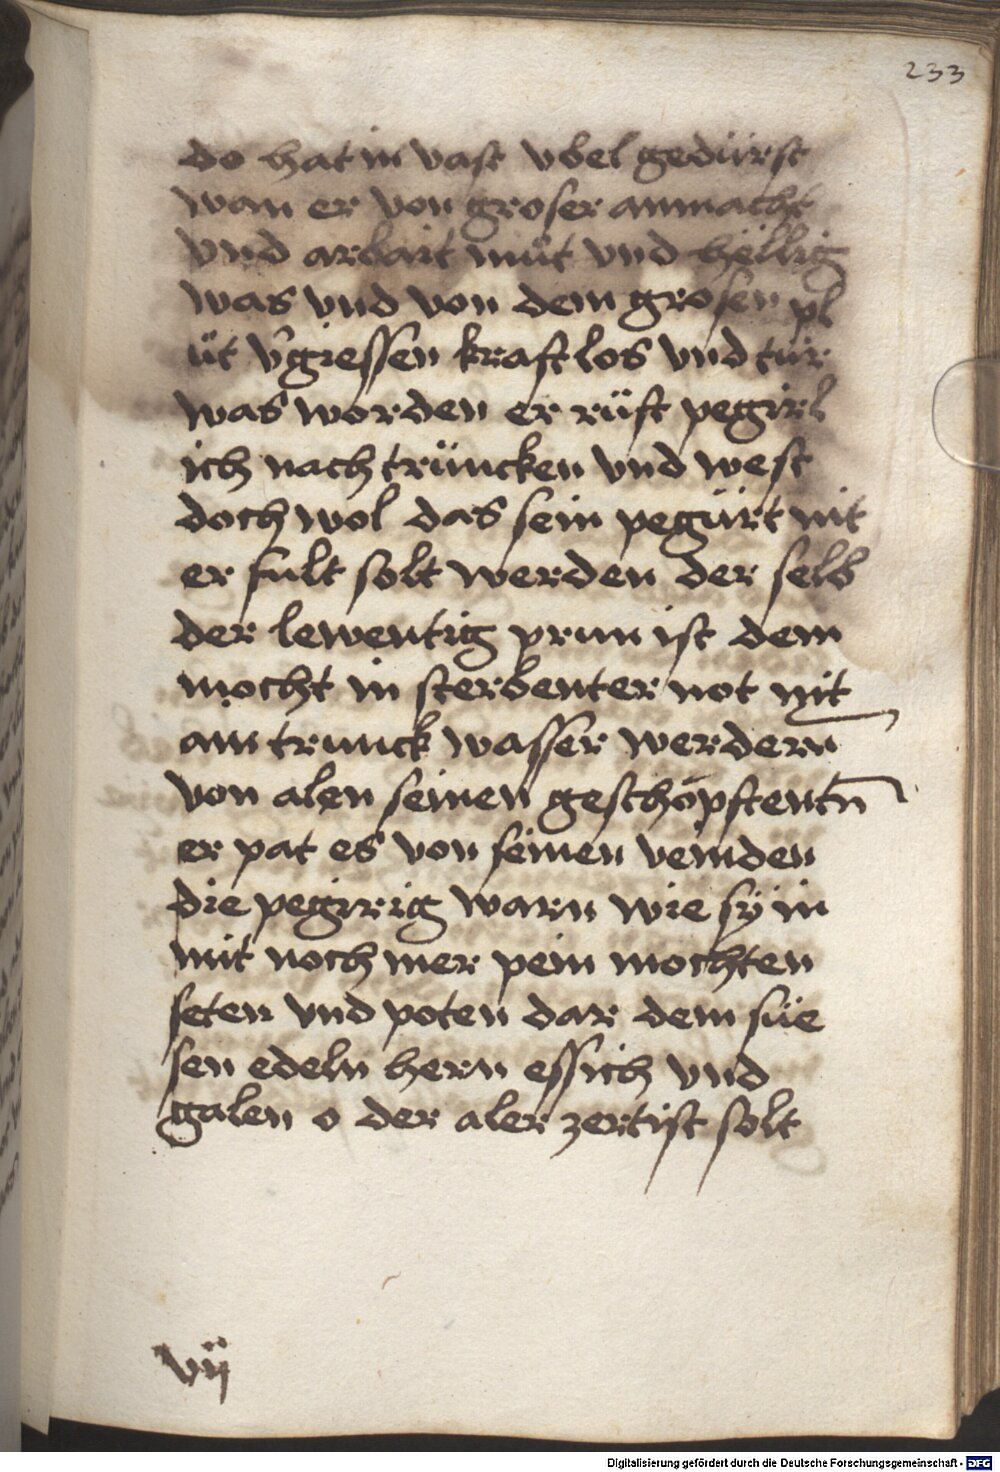 233
do hat in vast vbel gedürst
wan er von groser anmacht
vnd arbait müt vnd hëllig
was vnd von dem grosen pl
üt v̉giessen kraftlos vnd tür
was worden er rüft pegirl
ich nach trüncken vnd west
doch wol das sein pegürt nit
er fult solt werden der selb
der lewentig prun ist dem
mocht in sterbenter not nit
ain trunck wasser werdern
von alen seinen geschöpftentn̄
er pat es von seinen veinden
die pegirig warn wie sÿ in
mit noch mer pein mochten
seten vnd poten dar dem süe
sen edeln hern essich vnd
galen o der aler zertist solt
vij
Digitalisierung gefördert durch die Deutsche Forschungsgemeinschaft - DFG